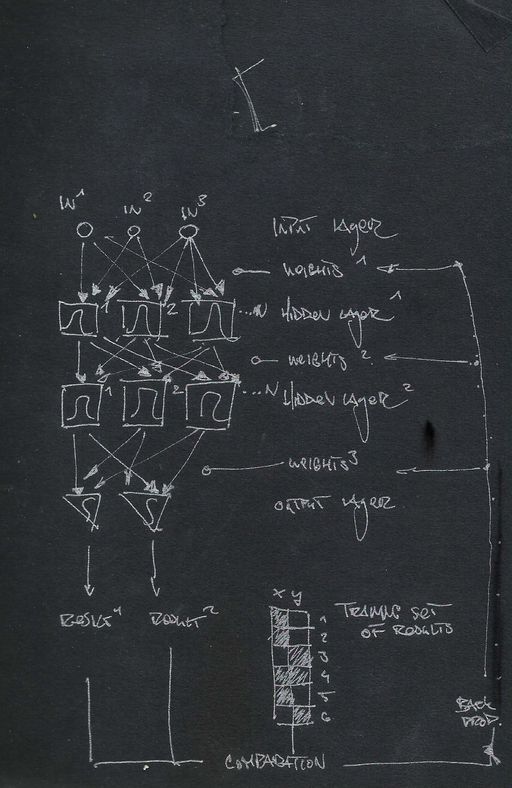 IN¹ IN² IN³
INPUT LAYER
WEIGHTS ¹
1 2 ...N HIDDEN LAYER ¹
WEIGHTS ²
1 2 ...N HIDDEN LAYER ²
WEIGHTS ³
OUTPUT LAYER
RESULT ¹ RESULT ²
x y
1
2
3
4
5
6
TRAINING SET
OF RESULTS
BACK
PROP.
COMPARATION